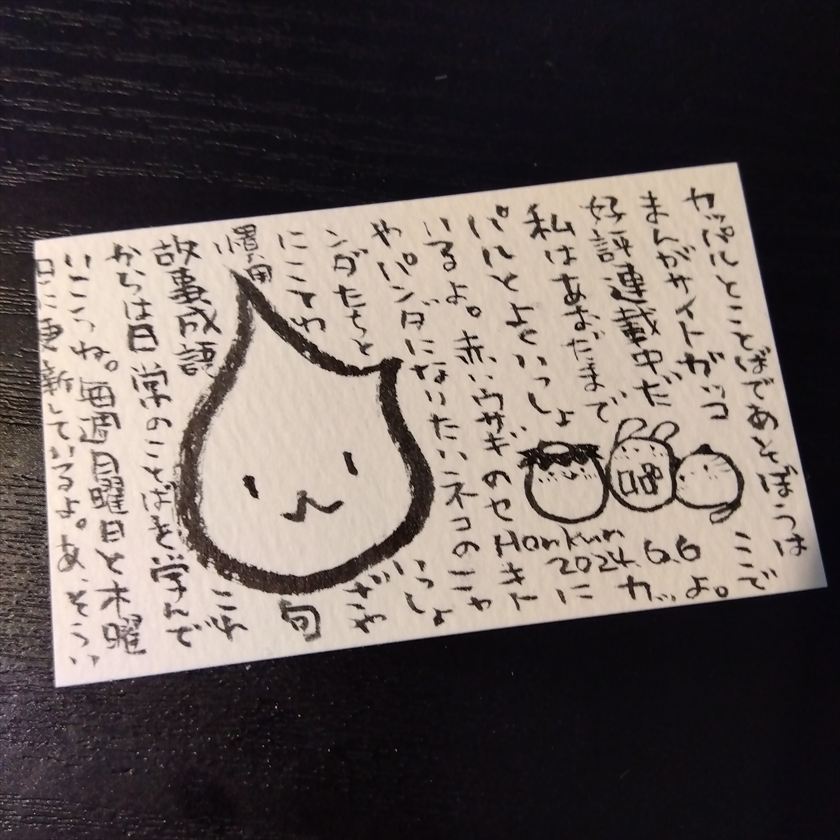 カッパルとことばであそぼうは
まんがサイトガッコここで
好評連載中だよ。
私はあおだまでカッ
パルとよくいっしょに
いるよ。赤いウサギのセキト
やパンダになりたいネコのニャ
ンダたちといっしょ
にことわざや
慣用句
故事成語これ
からは日常のことばを学んで
いこうね。毎週日曜日と木曜
日に更新しているよ。あ、そうい
Honkun
2024.6.6